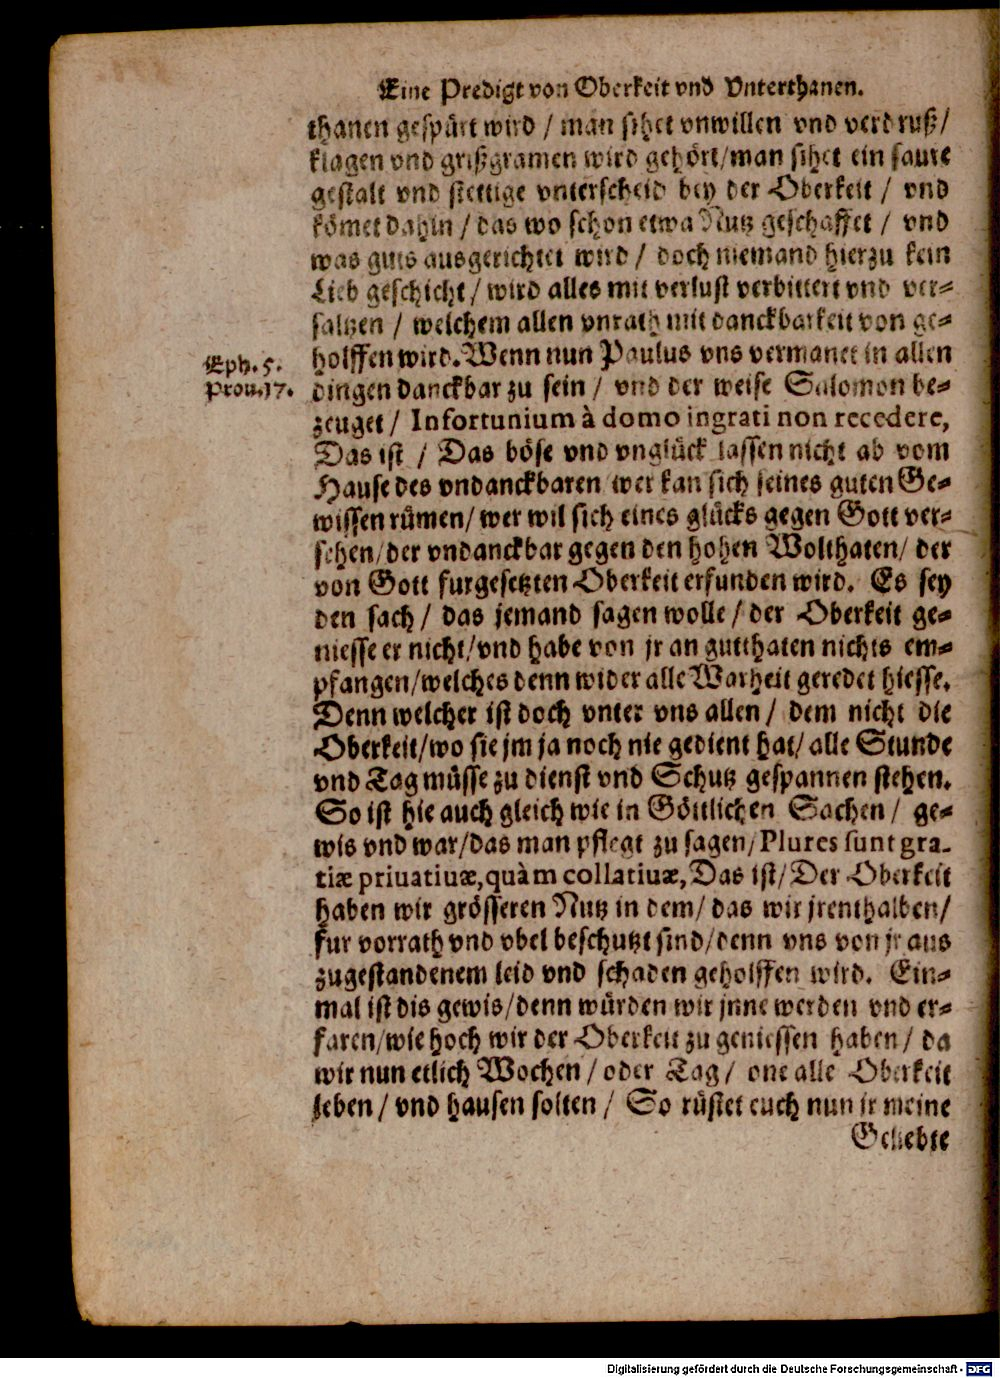 Eine Predigt von Oberkeit vnd Vnterthanen.
thanen gespürt wird / man sihet vnwillen vnd verdruß/
klagen vnd grißgramen wird gehört/man sihet ein saure
gestalt vnd stettige vnterscheid bey der Oberkeit / vnd
kömet dahin / das wo schon etwa Nutz geschaffet / vnd
was guts ausgerichtet wird / doch niemand hierzu kein
Lieb geschicht / wird alles mit verlust verbittert vnd ver-
saltzen / welchem allen vnrath mit danckbarkeit von ge-
Eph. 5.
holffen wird. Wenn nun Paulus vns vermanet in allen
Prou. 17.
dingen danckbar zu sein / vnd der weise Salomon be-
zeuget / Infortunium à domo ingrati non recedere,
Das ist / Das böse vnd vnglück lassen nicht ab vom
Hause des vndanckbaren wer kan sich seines guten Ge-
wissen rümen/ wer wil sich eines glücks gegen Gott ver-
sehen/der vndanckbar gegen den hohen Wolthaten/ der
von Gott furgesetzten Oberkeit erfunden wird. Es sey
den sach / das jemand sagen wolle / der Oberkeit ge-
niesse er nicht/vnd habe von jr an gutthaten nichts em-
pfangen/welches denn wider alle Warheit geredet hiesse.
Denn welcher ist doch vnter vns allen / dem nicht die
Oberkeit/wo sie jm ja noch nie gedient hat/ alle Stunde
vnd Tag müsse zu dienst vnd Schutz gespannen stehen.
So ist hie auch gleich wie in Göttlichen Sachen / ge-
wis vnd war/das man pflegt zu sagen/Plures sunt gra-
tiæ priuatiuæ, quàm collatiuæ, Das ist/Der Oberkeit
haben wir grösseren Nutz in dem/ das wir jrenthalben/
fur vorrath vnd vbel beschutzt sind/denn vns von jr aus
zugestandenem leid vnd schaden geholffen wird. Ein-
mal ist dis gewis/denn würden wir jnne werden vnd er-
faren/wie hoch wir der Oberkeit zu geniessen haben / da
wir nun etlich Wochen / oder Tag / one alle Oberkeit
leben / vnd hausen solten / So rüstet euch nun jr meine
Geliebte
Digitalisierung gefördert durch die Deutsche Forschungsgemeinschaft - DFG